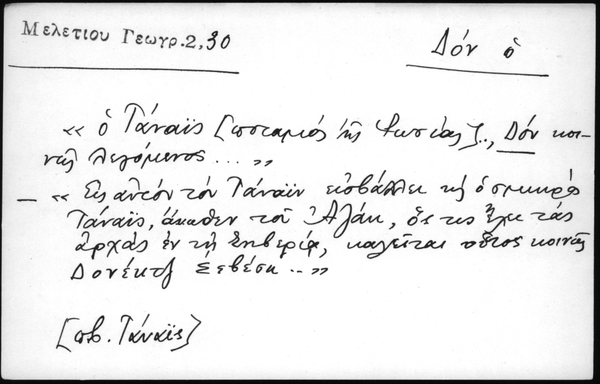 Μελετίου Γεωγρ. 2, 30
Δόν ὁ
« ὁ Τάναϊς [ποταμὸς τῆς Ῥωσίας].., Δόν κοι-
νῶς λεγόμενος ... »
— « Εἰς αὐτόν τόν Τάναϊν εἰσβάλλει κὴ ὁ σμικρός
Τάναϊς, ἄνωθεν τοῦ Ἀζάκ, ὅς τις ἔχει τάς
ἀρχάς ἐν τῇ, καλεῖται οὗτος κοινῶς
Δονέκτζ .. »
[πβ. Τάναϊς]